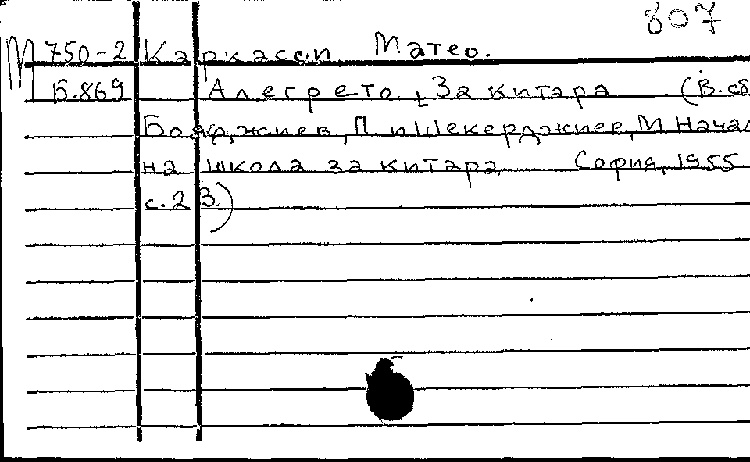 807
М 750-2 Каркаси, Матео.
Б.869 Алегрето. За китара (В. сб
Бояджиев, П. и Шекерджиев, М. Начал
на школа за китара София, 1955
с. 23)